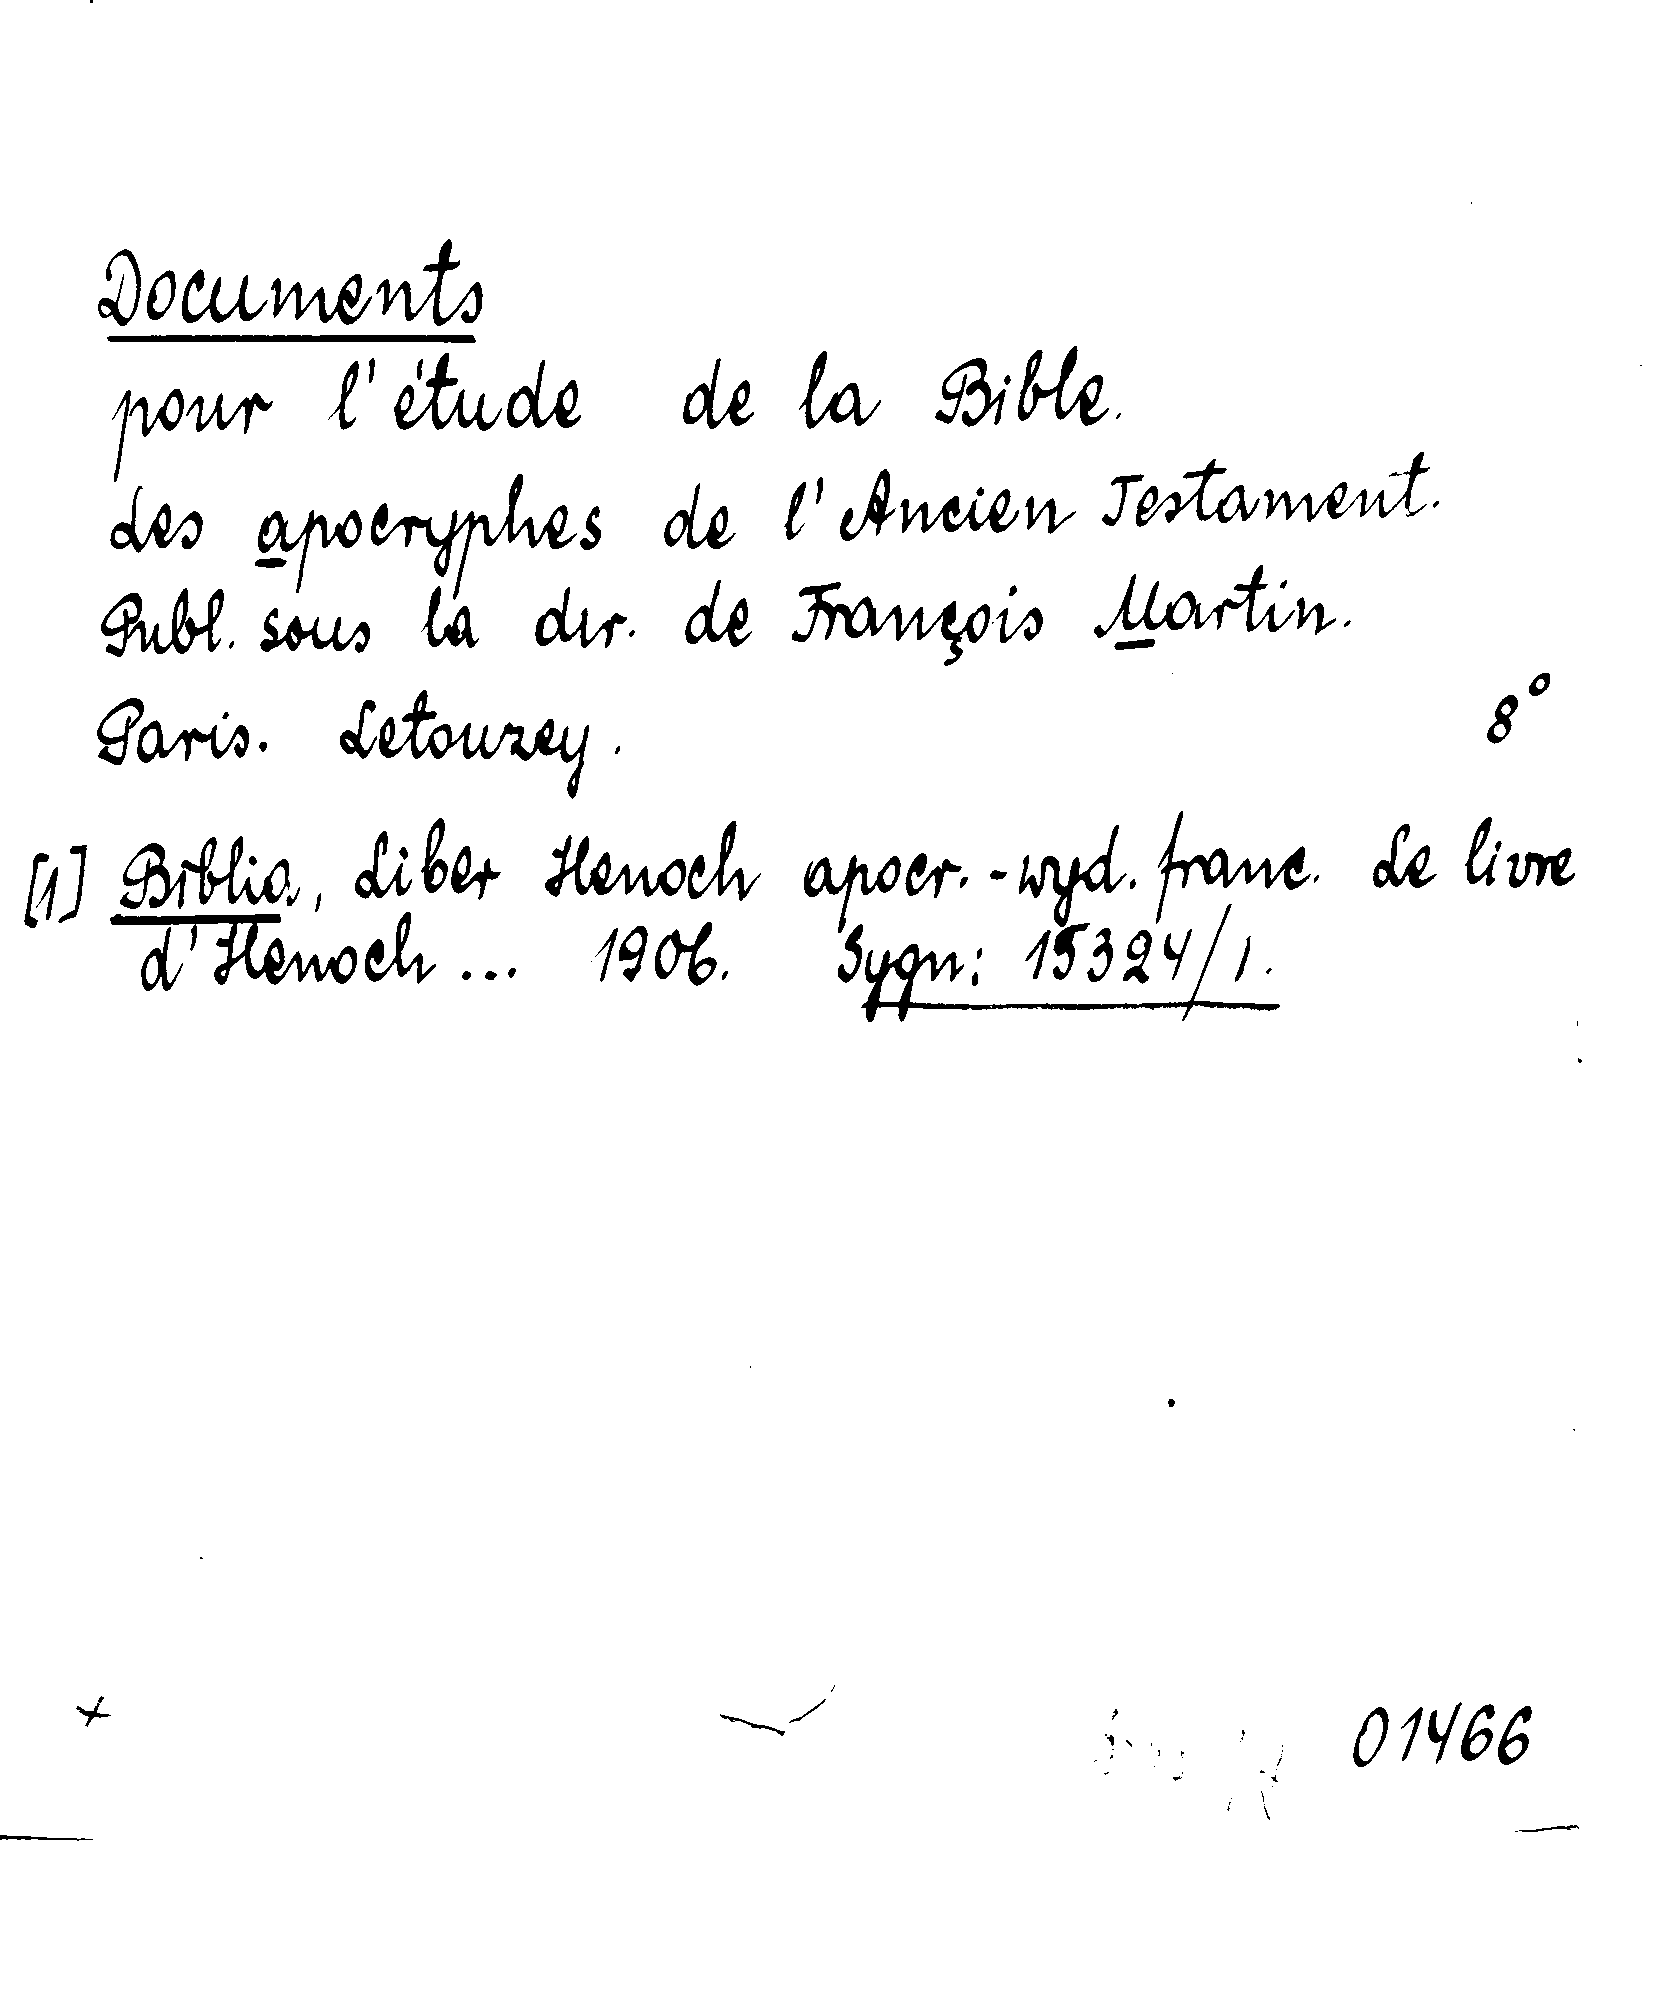 Documents
pour l'étude de la Bible.
Les apocryphes de l'Ancien Testament.
Publ. sous la dir. de François Martin.
Paris. Letouzey.
8°
[1] Biblia, Liber Henoch apocr. - wyd. franc. Le livre
d'Henoch ... 1906. Sygn: 15324/1.
01466